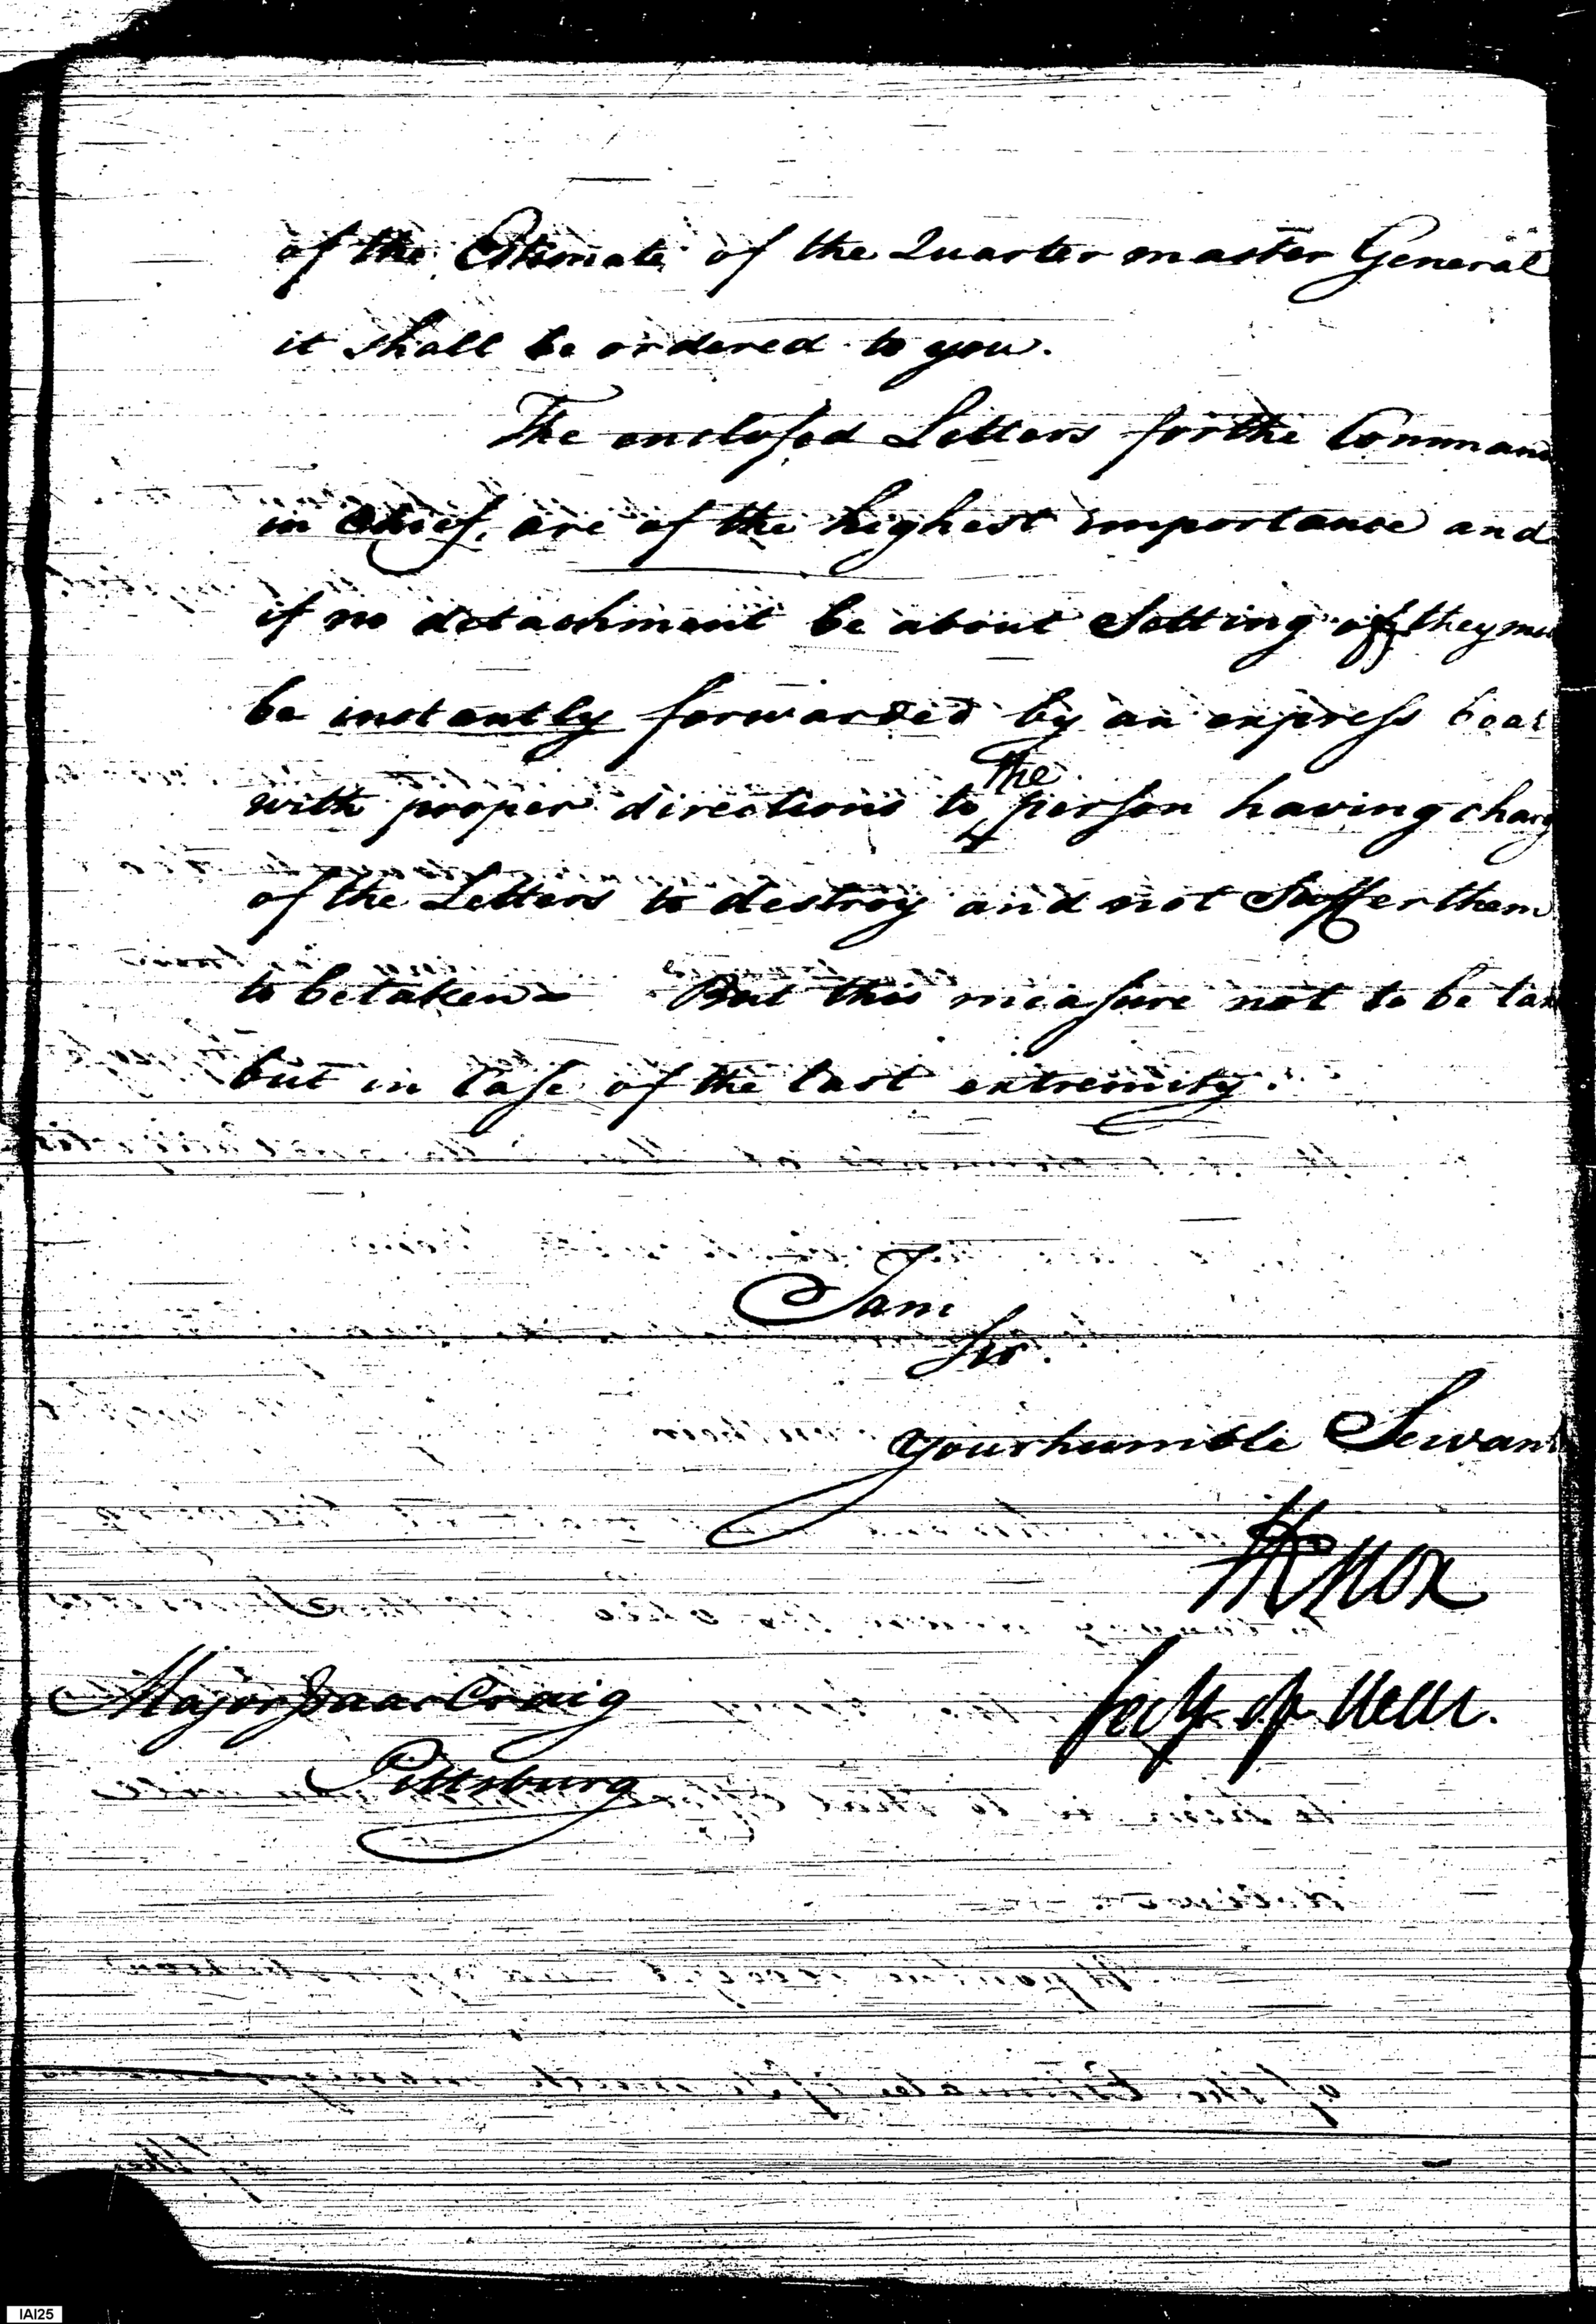 of the Estimate of the Quarter master General
it shall be ordered to you.
The enclosed Letters for the Comman
in Chief, are of the highest importance and
if no detachment be about Setting off they mu
be instantly forwarded by an express boat
with proper directions to the person having charg
of the Letters to destroy and not Suffer them
to be taken But this measure not to be tak
but in Case of the last extremity.
I am
Sir.
your humble Servant
HKnox
Secy of War.
Major Isaac Craig
Pittsburg
IAI25